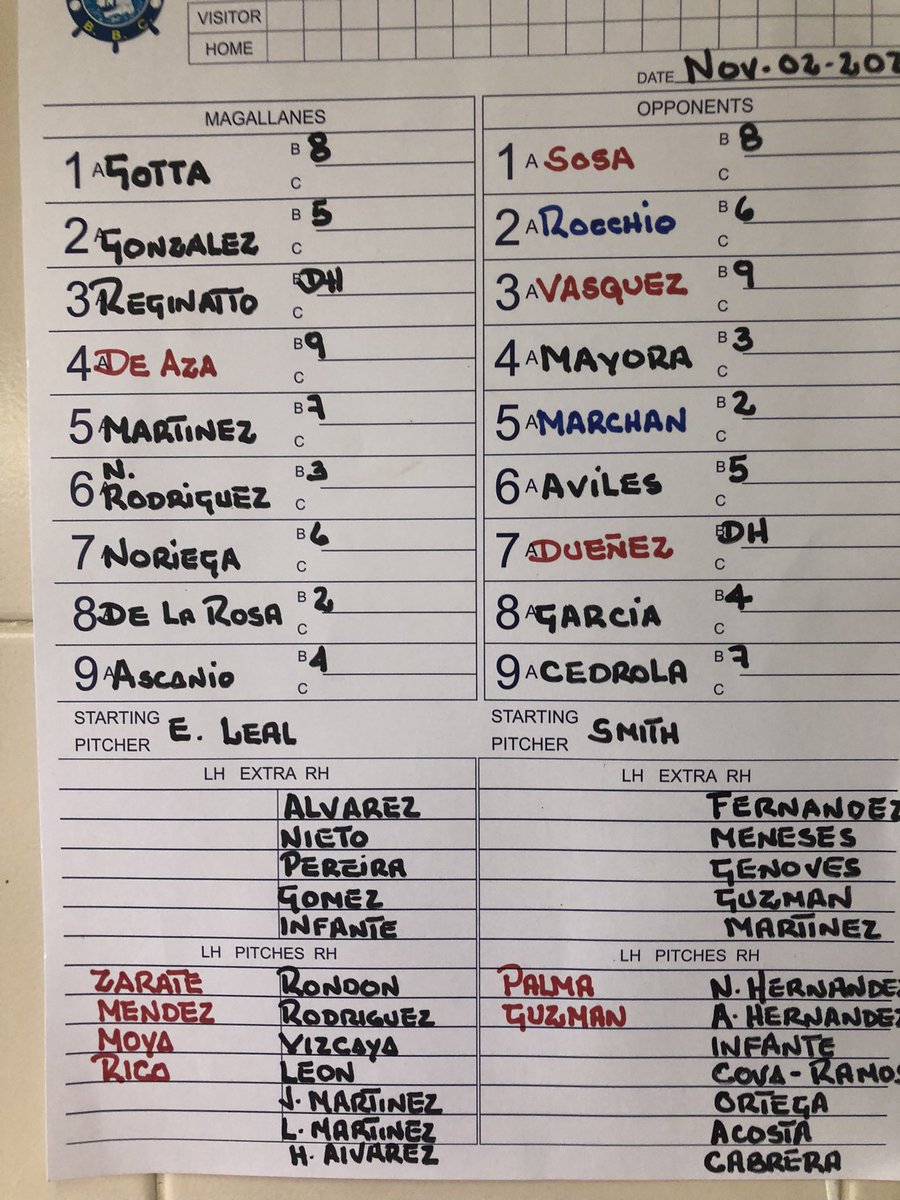 B. B. C.
VISITOR
HOME
DATE Nov. 02-202
MAGALLANES
1 A GOTTA B 8
C
2 A GONZALEZ B 5
C
3 A REGINATTO B DH
C
4 A DE AZA B 9
C
5 A MARTINEZ B 7
C
6 A N. RODRIGUEZ B 3
C
7 A NORIEGA B 6
C
8 A DE LA ROSA B 2
C
9 A ASCANIO B 4
C
STARTING PITCHER E. LEAL
LH EXTRA RH
ALVAREZ
NIETO
PEREIRA
GOMEZ
INFANTE
LH PITCHES RH
ZARATE RONDON
MENDEZ RODRIGUEZ
MOYA VIZCAYA
RICO LEON
J. MARTINEZ
L. MARTINEZ
H. ALVAREZ
OPPONENTS
1 A SOSA B 8
C
2 A ROCCHIO B 6
C
3 A VASQUEZ B 9
C
4 A MAYORA B 3
C
5 A MARCHAN B 2
C
6 A AVILES B 5
C
7 A DUEÑEZ B DH
C
8 A GARCIA B 4
C
9 A CEDROLA B 7
C
STARTING PITCHER SMITH
LH EXTRA RH
FERNANDEZ
MENESES
GENOVES
GUZMAN
MARTINEZ
LH PITCHES RH
PALMA N. HERNANDEZ
GUZMAN A. HERNANDEZ
INFANTE
COVA-RAMOS
ORTEGA
ACOSTA
CABRERA